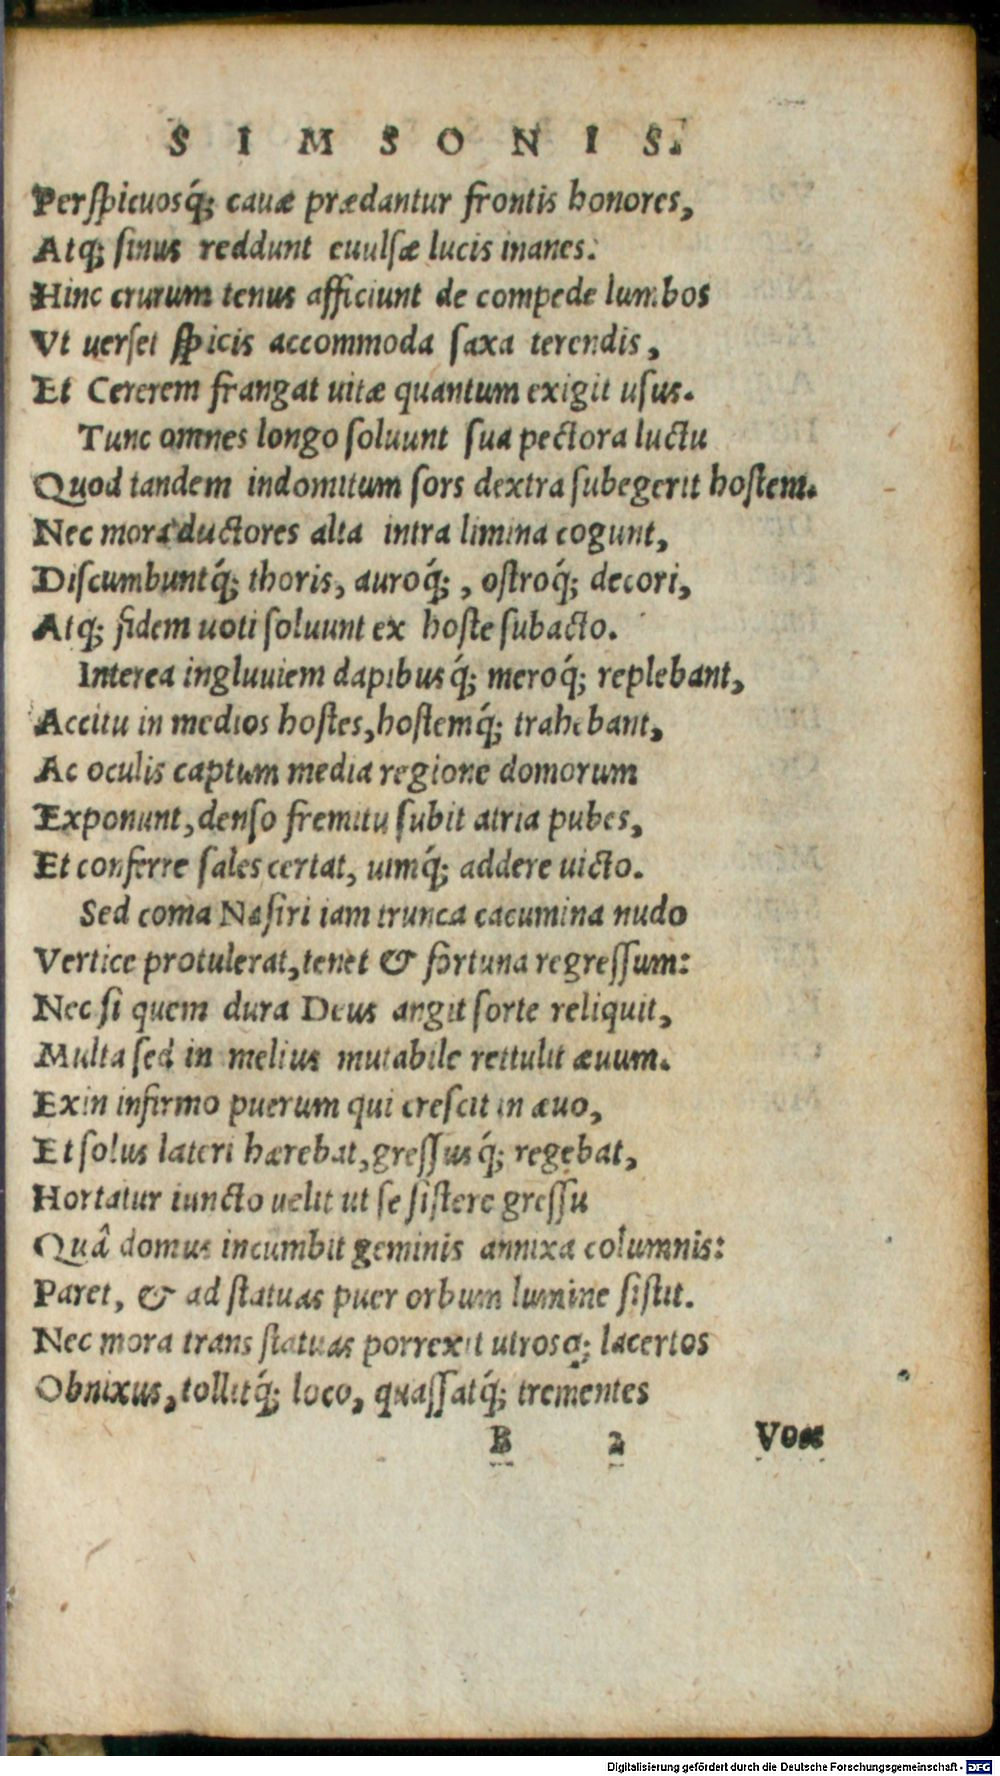 S I M S O N I S.
Perſpicuosq́; cauæ prædantur frontis honores,
Atq; ſinus reddunt euulſæ lucis inanes.
Hinc crurum tenus afficiunt de compede lumbos
Vt uerſet ſpicis accommoda ſaxa terendis,
Et Cererem frangat uitæ quantum exigit uſus.
Tunc omnes longo ſoluunt ſua pectora luctu
Quod tandem indomitum ſors dextra ſubegerit hoſtem.
Nec mora ductores alta intra limina cogunt,
Diſcumbuntq́; thoris, auroq́; , oſtroq́; decori,
Atq; fidem uoti ſoluunt ex hoſte ſubacto.
Interea ingluuiem dapibusq́; meroq́; replebant,
Accitu in medios hoſtes, hoſtemq́; trahebant,
Ac oculis captum media regione domorum
Exponunt, denſo fremitu ſubit atria pubes,
Et conferre ſales certat, uimq́; addere uicto.
Sed coma Naſiri iam trunca cacumina nudo
Vertice protulerat, tenet & fortuna regreſſum:
Nec ſi quem dura Deus angit ſorte reliquit,
Multa ſed in melius mutabile rettulit æuum.
Exin infirmo puerum qui creſcit in æuo,
Et ſolus lateri hærebat, greſſusq́; regebat,
Hortatur iuncto uelit ut ſe ſiſtere greſſu
Quâ domus incumbit geminis annixa columnis:
Paret, & ad ſtatuas puer orbum lumine ſiſtit.
Nec mora trans ſtatuas porrexit utrosq; lacertos
Obnixus, tollitq́; loco, quaſſatq́; trementes
B 2 Vox
Digitalisierung gefördert durch die Deutsche Forschungsgemeinschaft - DFG